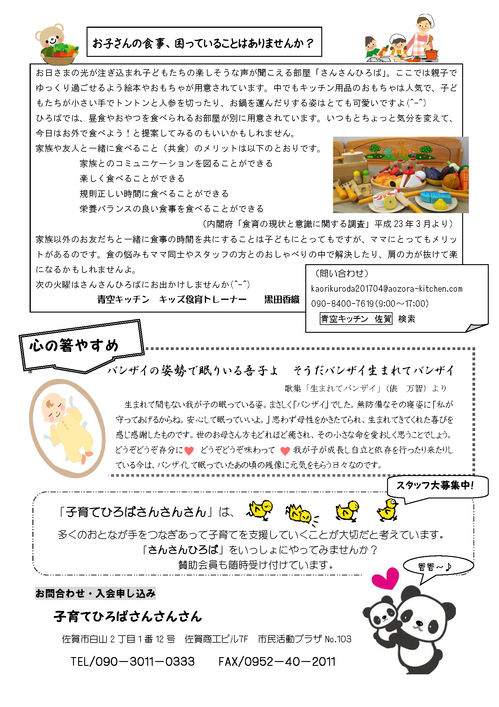 お子さんの食事、困っていることはありませんか？
お日さまの光が注ぎ込まれ子どもたちの楽しそうな声が聞こえる部屋「さんさんひろば」。ここでは親子で
ゆっくり過ごせるよう絵本やおもちゃが用意されています。中でもキッチン用品のおもちゃは人気で、子ど
もたちが小さい手でトントンと人参を切ったり、お鍋を運んだりする姿はとても可愛いですよ(^-^)
ひろばでは、昼食やおやつを食べられるお部屋が別に用意されています。いつもとちょっと気分を変えて、
今日はお外で食べよう！と提案してみるのもいいかもしれません。
家族や友人と一緒に食べること（共食）のメリットは以下のとおりです。
家族とのコミュニケーションを図ることができる
楽しく食べることができる
規則正しい時間に食べることができる
栄養バランスの良い食事を食べることができる
（内閣府「食育の現状と意識に関する調査」平成23年3月より）
家族以外のお友だちと一緒に食事の時間を共にすることは子どもにとってもですが、ママにとってもメリッ
トがあるのです。食の悩みもママ同士やスタッフの方とのおしゃべりの中で解決したり、肩の力が抜けて楽
になるかもしれませんよ。
次の火曜はさんさんひろばにお出かけしませんか(^-^)
青空キッチン　キッズ食育トレーナー　　黒田香織
（問い合わせ）
kaorikuroda201704@aozora-kitchen.com
090-8400-7619(9:00～17:00)
青空キッチン 佐賀 検索
心の箸やすめ
バンザイの姿勢で眠りいる吾子よ　そうだバンザイ生まれてバンザイ
歌集「生まれてバンザイ」（俵　万智）より
生まれて間もない我が子の眠っている姿。まさしく『バンザイ』でした。無防備なその寝姿に『私が
守ってあげるからね。安心して眠っていいよ。』思わず母性をかきたてられ、生まれてきてくれた喜びを
感じ感謝したものです。世のお母さん方もどれほど癒され、その小さな命を愛おしく思うことでしょう。
どうぞどうぞ存分に どうぞどうぞ味わって 我が子が成長し自立と依存を行ったり来たりし
ている今は、バンザイして眠っていたあの頃の残像に元気をもらう日々なのです。
スタッフ大募集中!
「子育てひろばさんさんさん」は、
多くのおとなが手をつなぎあって子育てを支援していくことが大切だと考えています。
「さんさんひろば」をいっしょにやってみませんか？
賛助会員も随時受け付けています。
皆皆～♪
お問合わせ・入会申し込み
子育てひろばさんさんさん
佐賀市白山２丁目１番12号　佐賀商工ビル7F　市民活動プラザ No.103
TEL/090－3011－0333　　FAX/0952－40－2011